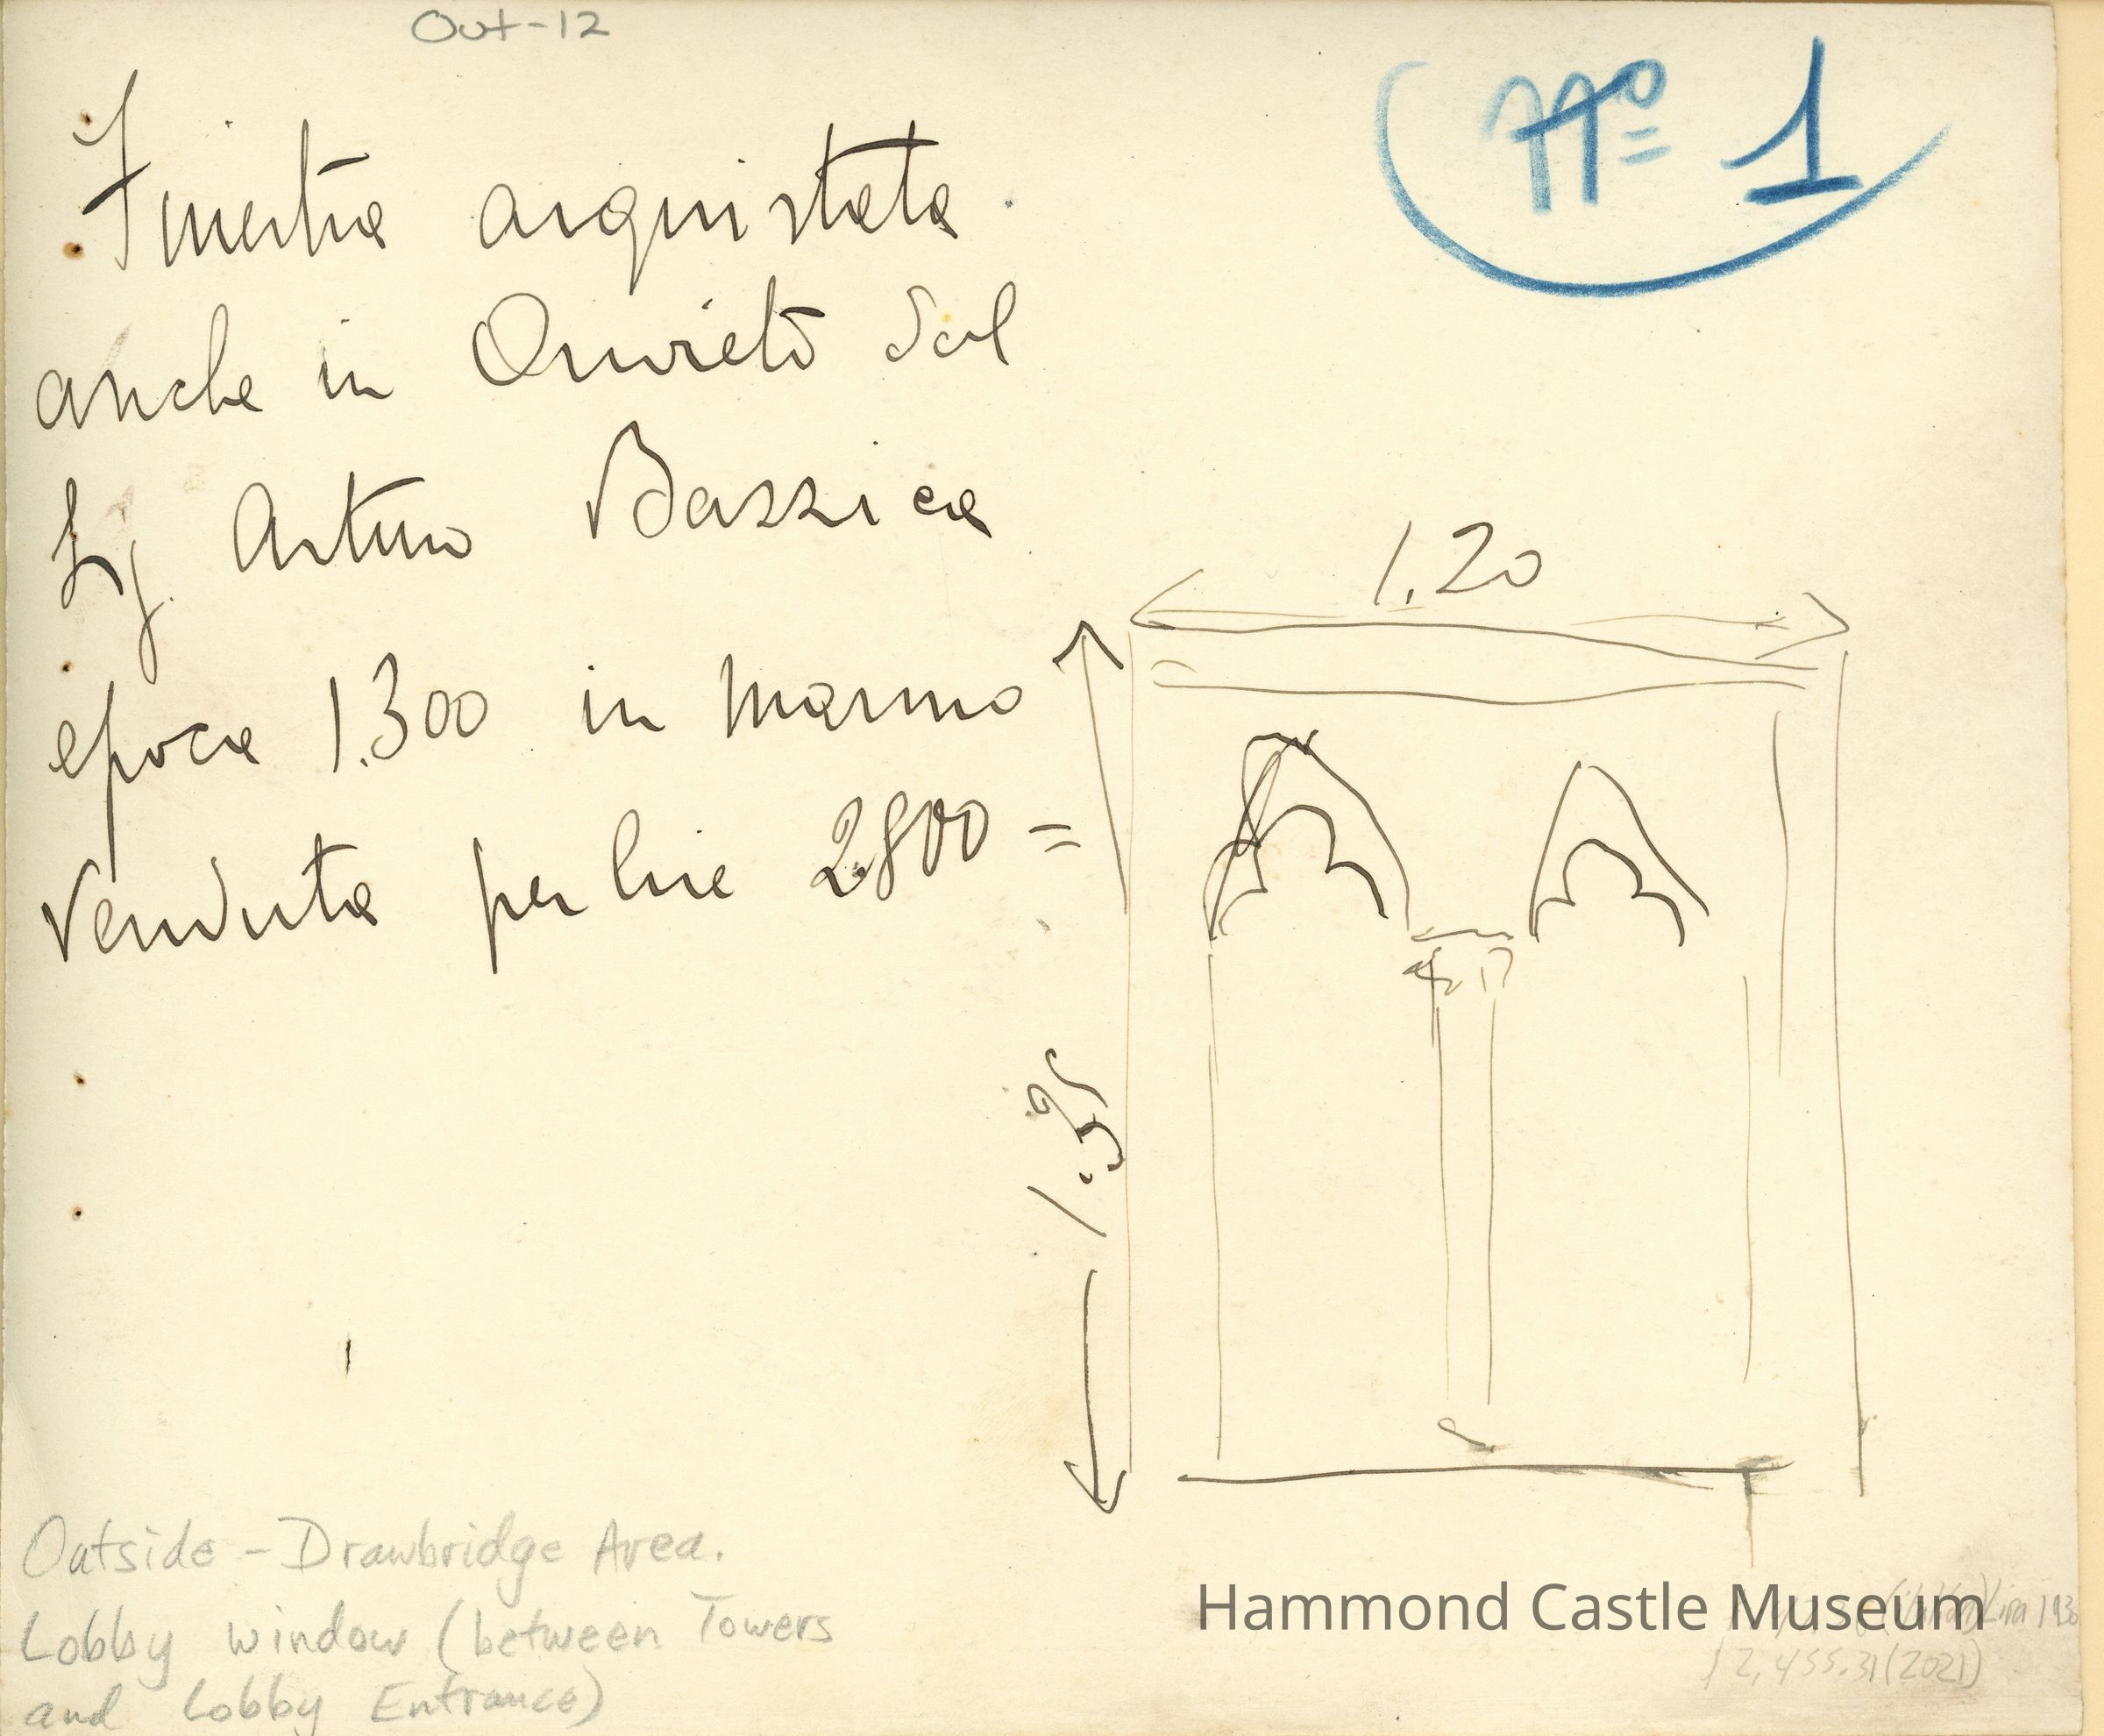 Out-12
Nº 1
Finestra acquistata
anche in Orvieto dal
Sig. Arturo Bazzica
epoca 1.300 in marmo
venduta per lire 2800=
1.20
1.35
Outside - Drawbridge Area.
Lobby window (between Towers
and Lobby Entrance)
Hammond Castle Museum
Lira 1930
$2,455.31 (2021)